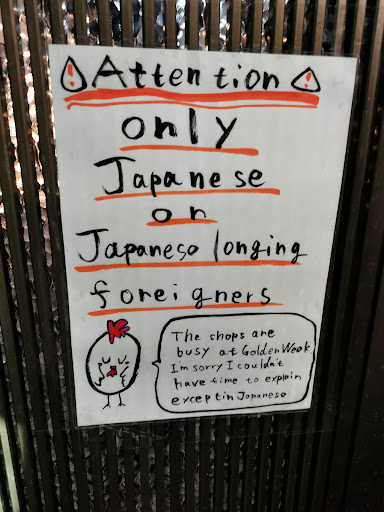 Attention
only
Japanese
or
Japanese longing
foreigners
The shops are
busy at Golden Week
I'm sorry I couldn't
have time to explain
except in Japanese